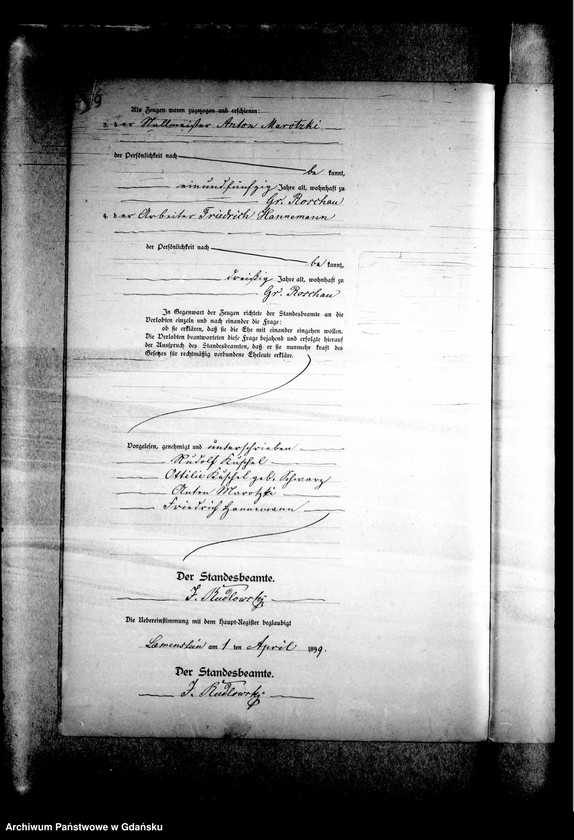 Als Zeugen waren zugezogen und erschienen:
der Stallmeister Anton Marotzki
der Persönlichkeit nach
be kannt,
einundfünfzig Jahre alt, wohnhaft zu
Gr. Roschau
der Arbeiter Friedrich Hannemann
der Persönlichkeit nach
be kannt,
dreißig Jahre alt, wohnhaft zu
Gr. Roschau
In Gegenwart der Zeugen richtete der Standesbeamte an die
Verlobten einzeln und nach einander die Frage:
ob sie erklären, daß sie die Ehe mit einander eingehen wollen.
Die Verlobten beantworteten diese Frage bejahend und erfolgte hierauf
der Ausspruch des Standesbeamten, daß er sie nunmehr kraft des
Gesetzes für rechtmäßig verbundene Eheleute erkläre.
Vorgelesen, genehmigt und unterschrieben
Rudolf Küschel
Ottilie Küschel geb. Schwarz
Anton Marotzki
Friedrich Hannemann
Der Standesbeamte.
J. Rudlowski
Die Uebereinstimmung mit dem Haupt-Register beglaubigt
am 1 ten April 1899.
Der Standesbeamte.
J. Rudlowski
Archiwum Państwowe w Gdańsku